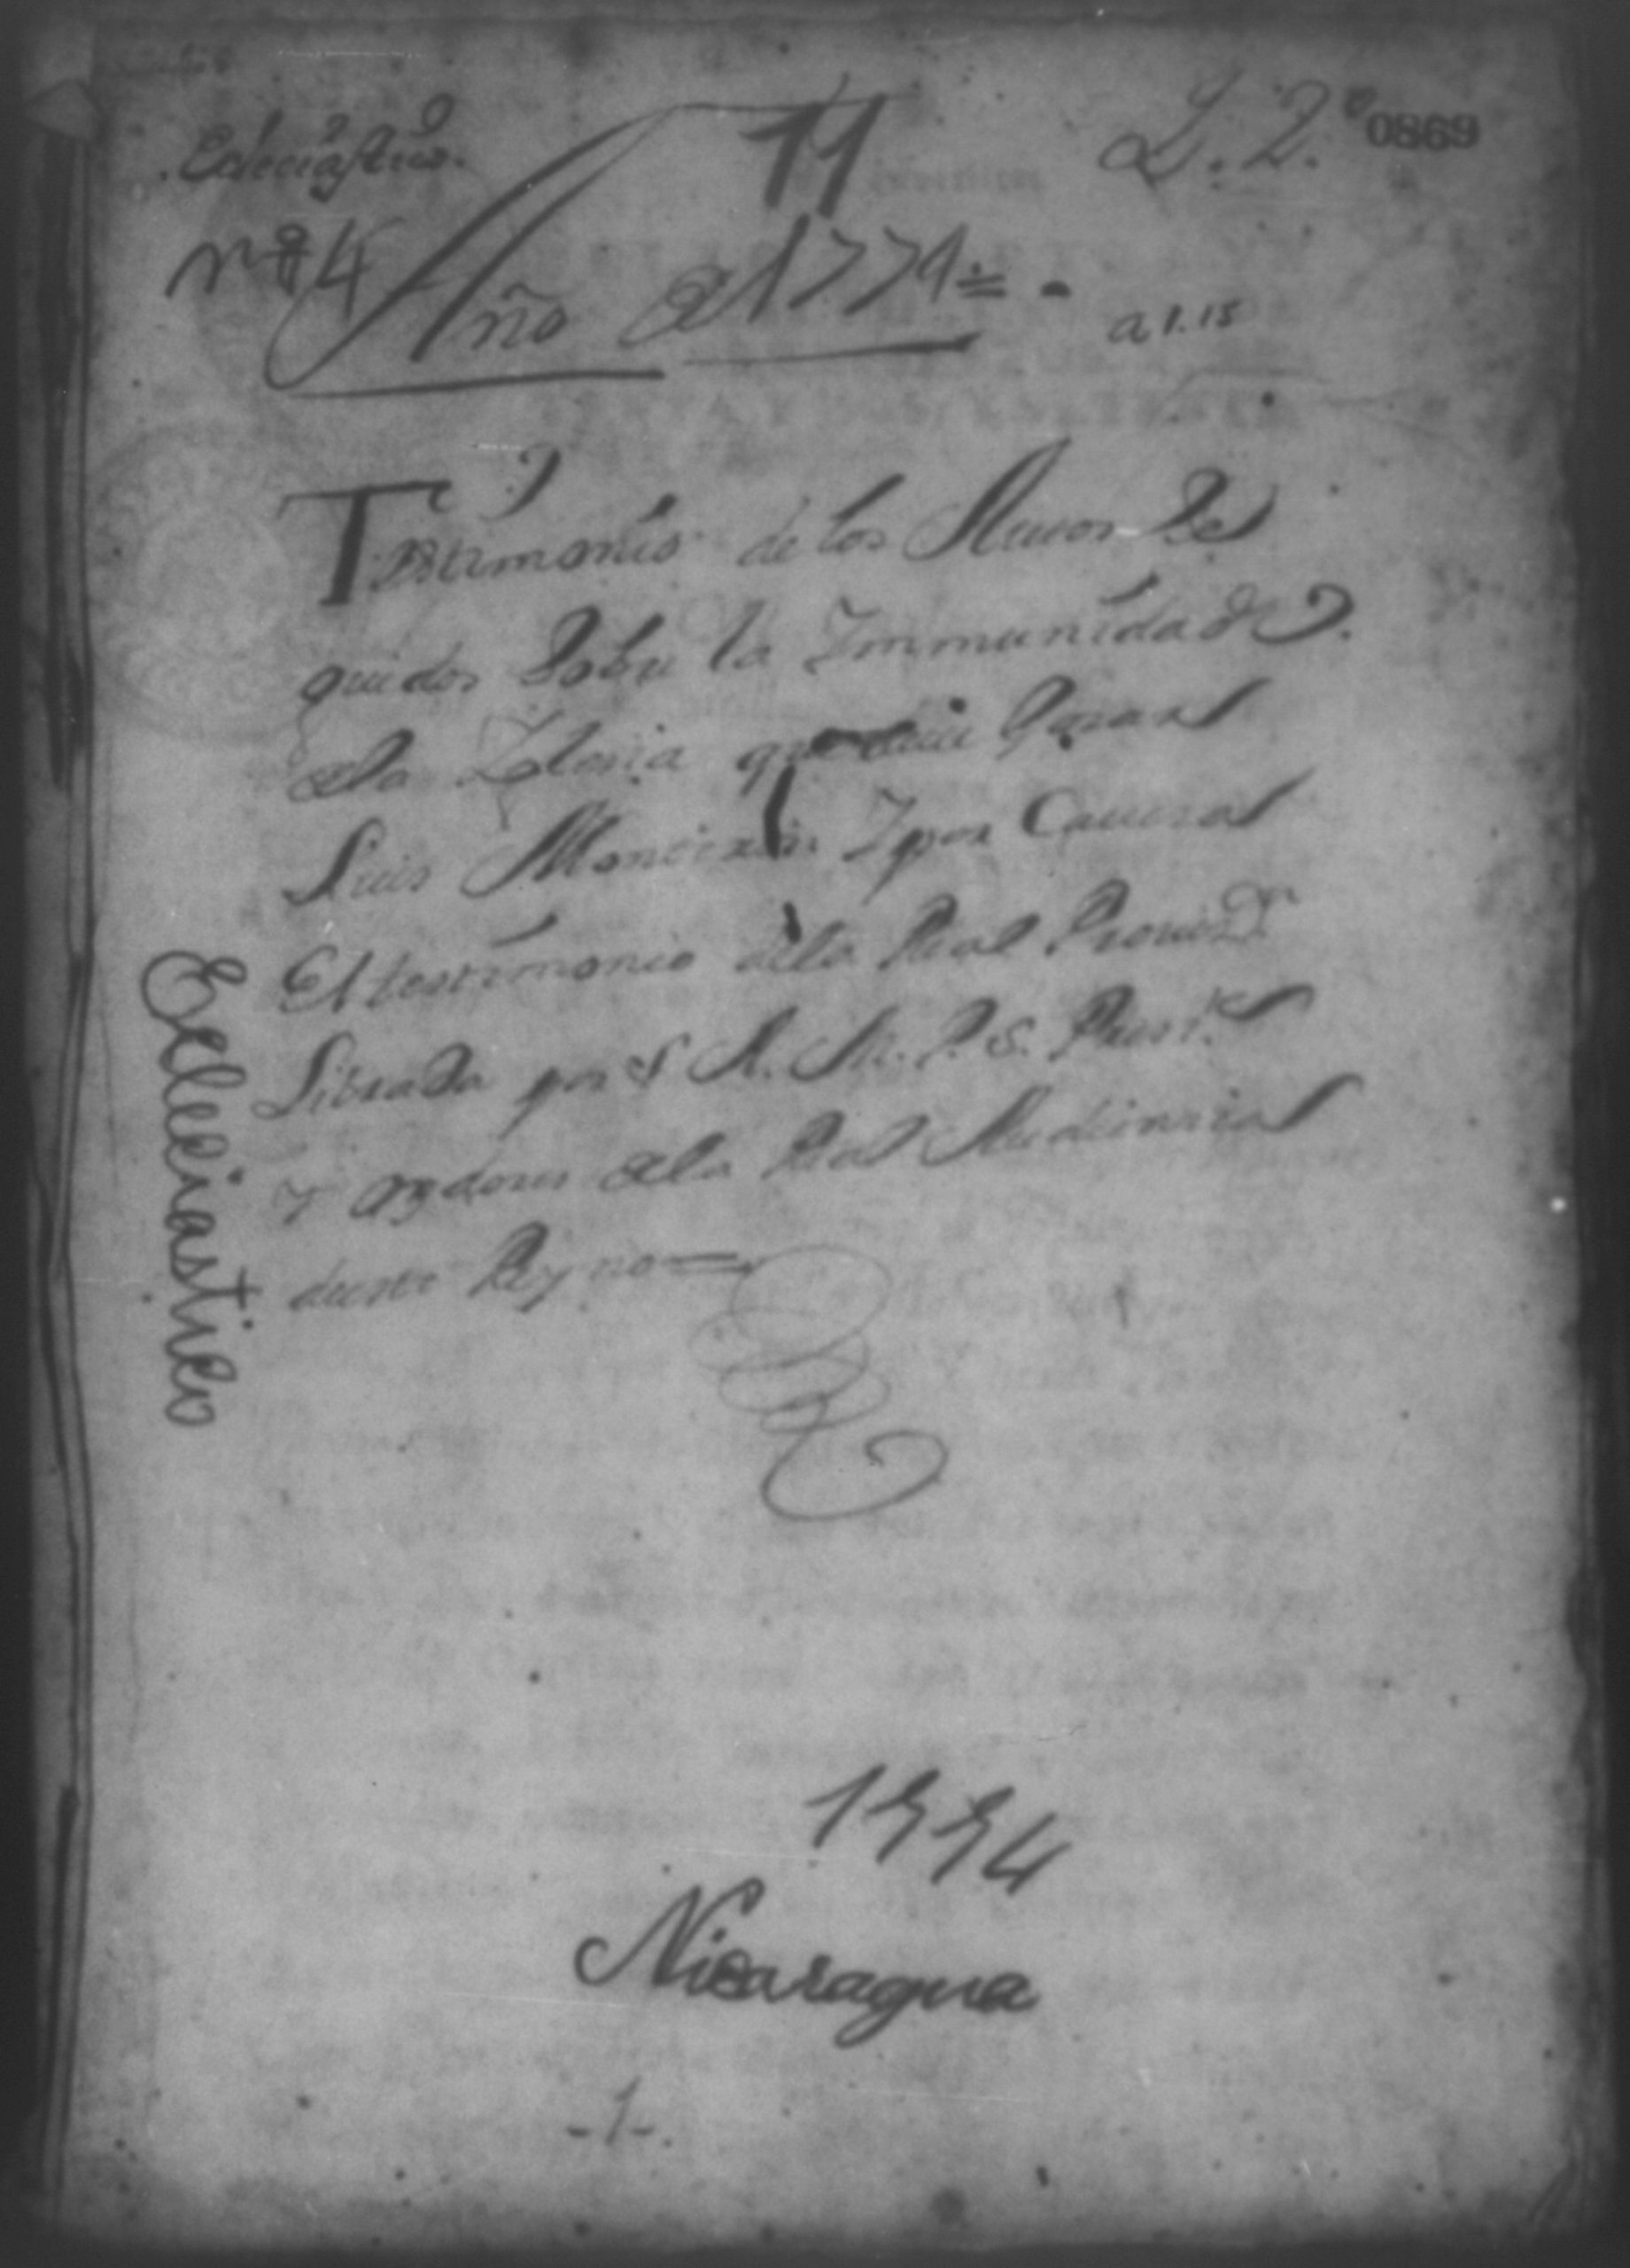 Eclesiastico.
11
L. 2.º 0869
nº 4
Año de 1774
a 1.15
Testimonio de los Autos Se
guidos Sobre la Immunidad
de la Iglesia que Gozar
Luis Por Cavesa
El testimonio de la Real Provicⁿ
Librada por S. A. M. P. S. Pres.te
y Oydores de la Real Audiencia
de este Reyno
Eclesiastico
1774
Nicaragua
-1-.